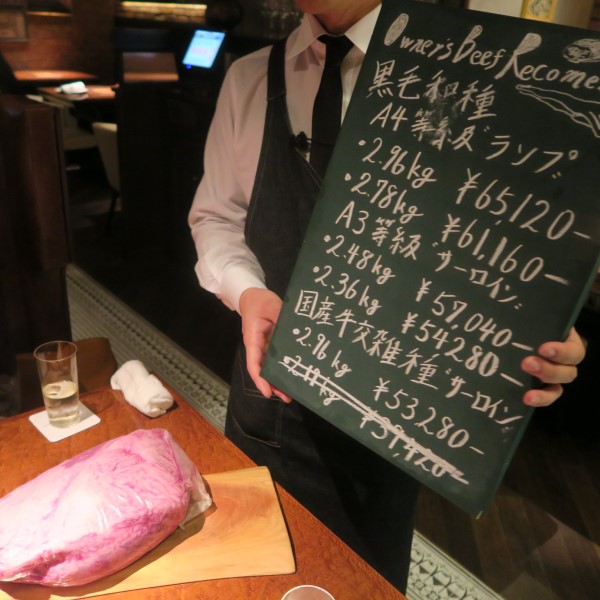 Owner's Beef Recome
黒毛和種
A4等級 "ランプ"
・2.96kg ¥65,120-
・2.78kg ¥61,160-
A3等級 "サーロイン"
・2.48kg ¥57,040-
・2.36kg ¥54,280-
国産牛交雑種 "サーロイン"
・2.96kg ¥53,280-